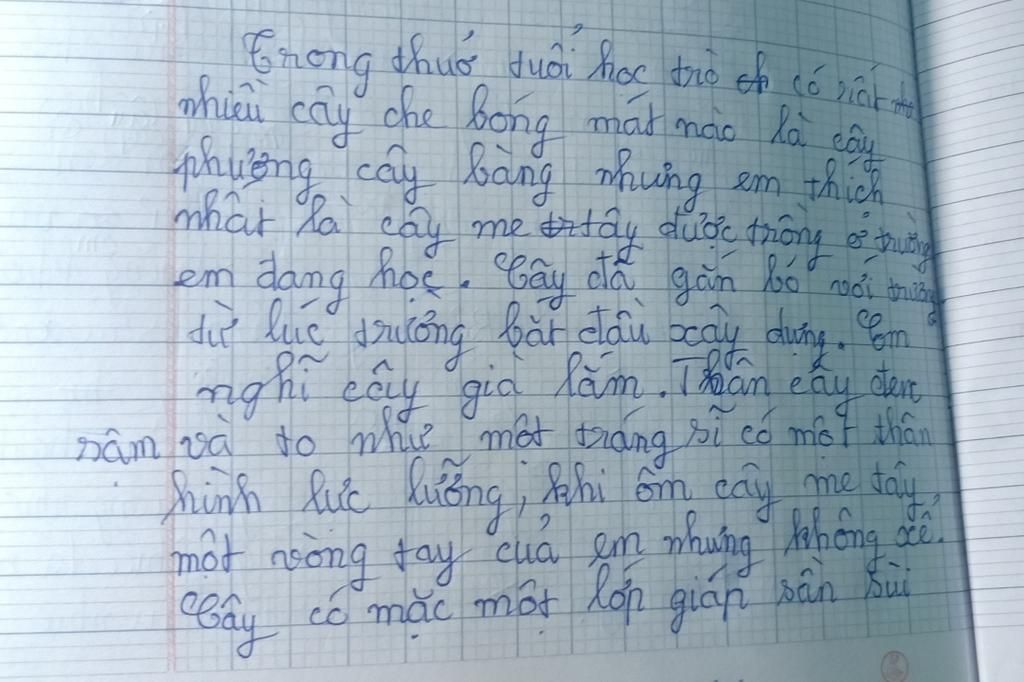 Trong thuở tuổi học trò có rất
nhiều cây che bóng mát nào là cây
phượng cây bàng nhưng em thích
nhất là cây me tây được trồng ở trường
em đang học. Cây đã gắn bó với trường
từ lúc trường bắt đầu xây dựng. Em
nghĩ cây già lắm. Thân cây đen
sậm và to như một tráng sĩ có một thân
hình lực lưỡng, khi ôm cây me tây,
một vòng tay của em nhưng không xể.
Cây có mặc một lớp giáp sần sùi